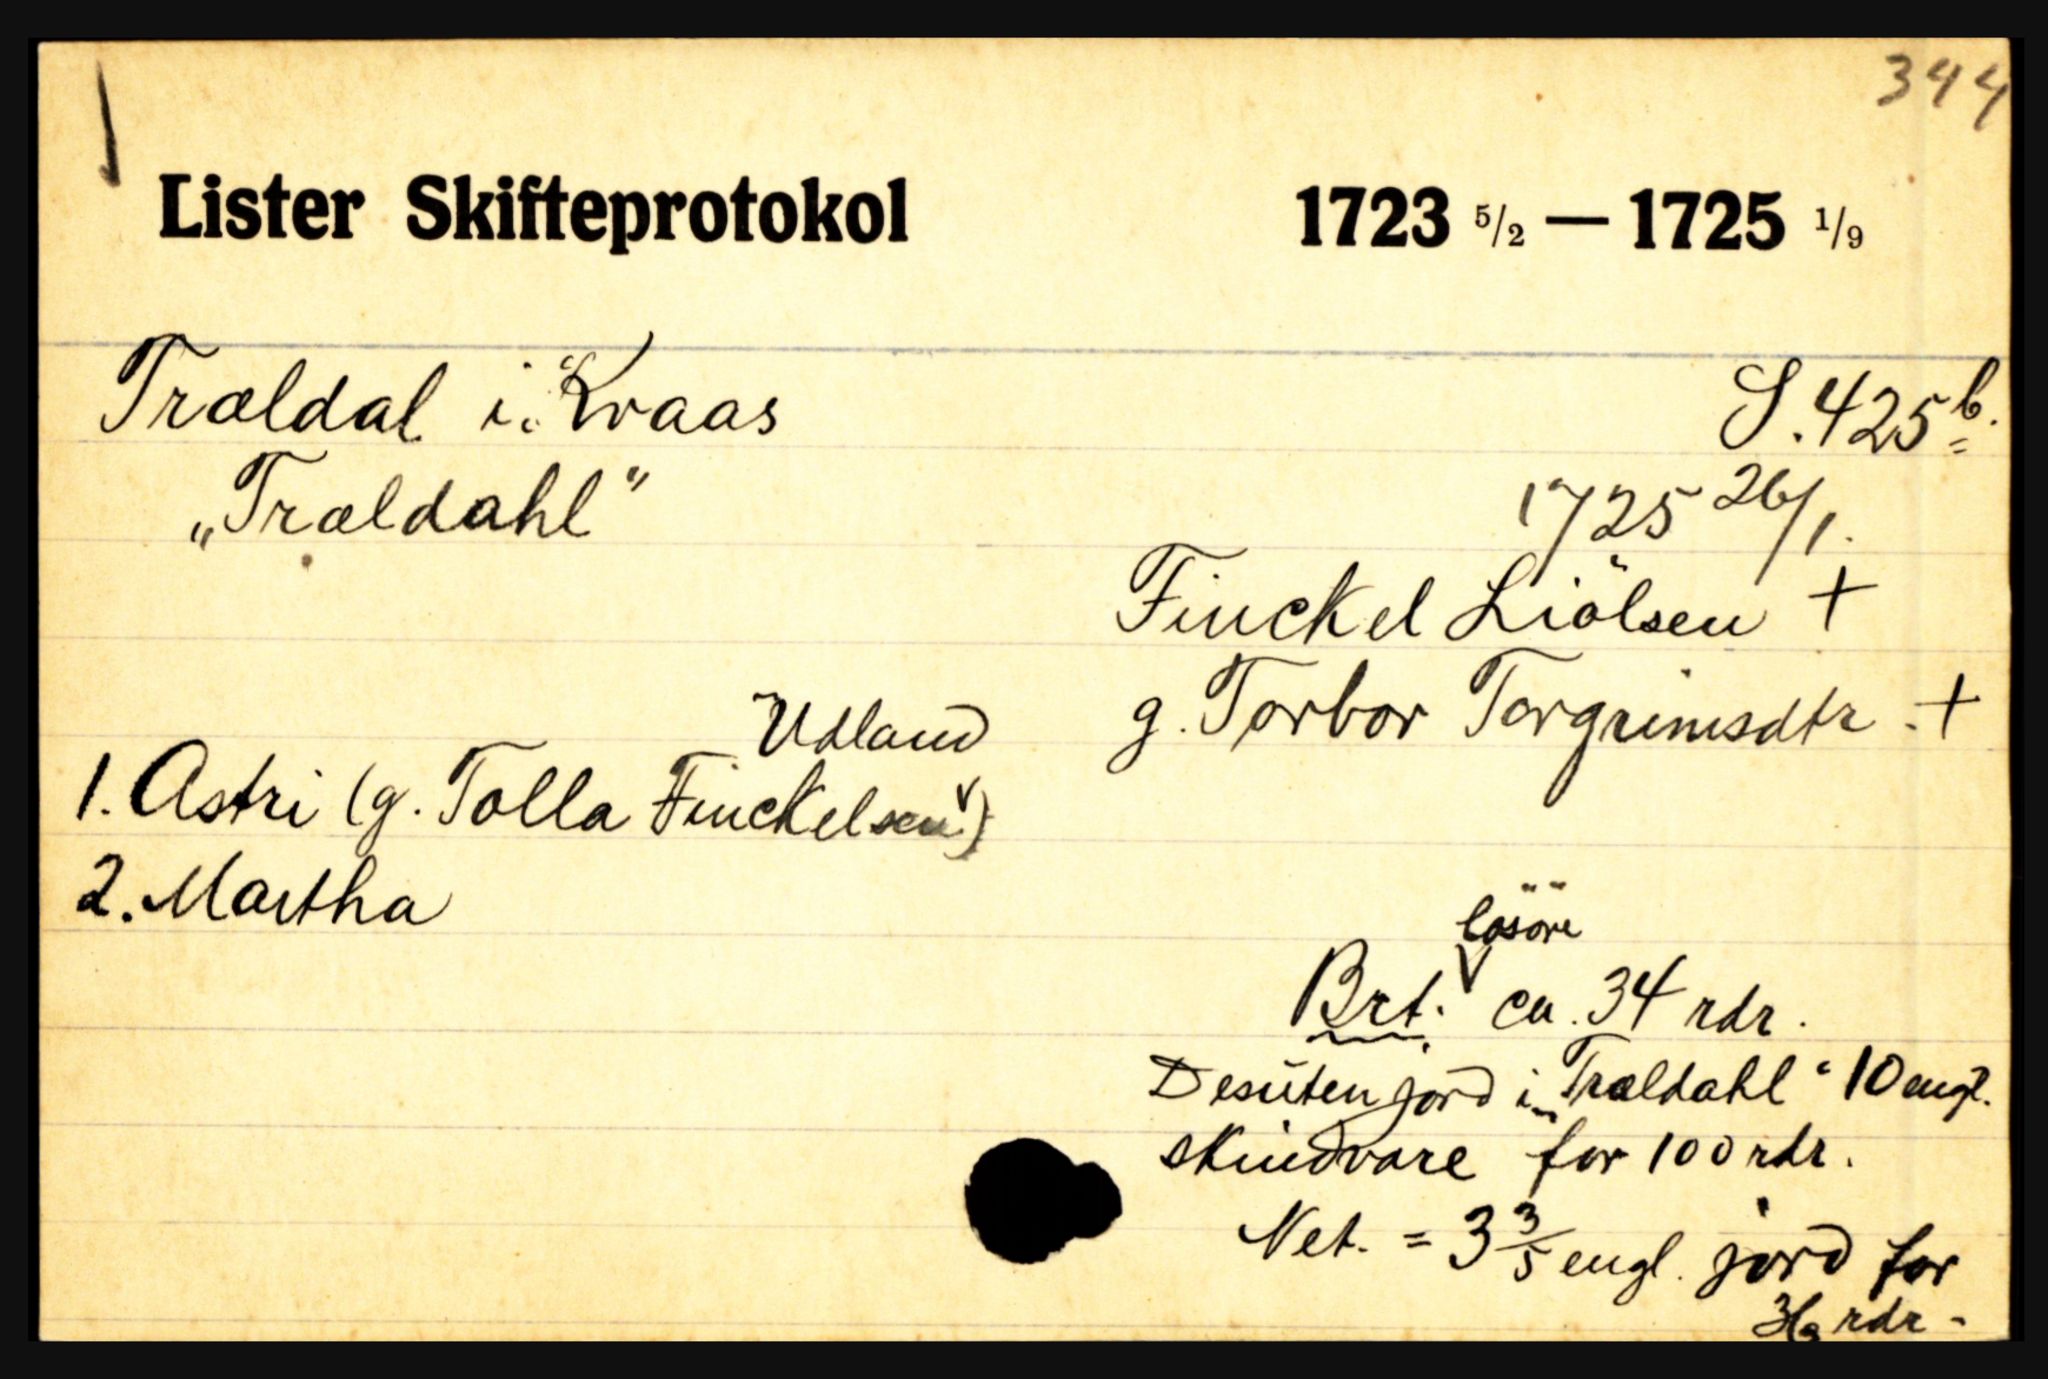 344
Lister Skifteprotokol 1723 5/2 — 1725 1/9
Træeldal i Kvaas
S. 425 b.
„Træeldahl"
1725 26/1.
Finckel Liölsen +
g. Torbor Torgrimsdtr. +
Udland
1. Astri (g. Tolla Finckelsen)
2. Martha
lösöre
Brt. ca. 34 rdr.
Desuten jord i „Træeldahl" 10 engl.
skindvare for 100 rdr.
Net. = 3 3/5 engl. jord for
36 rdr.